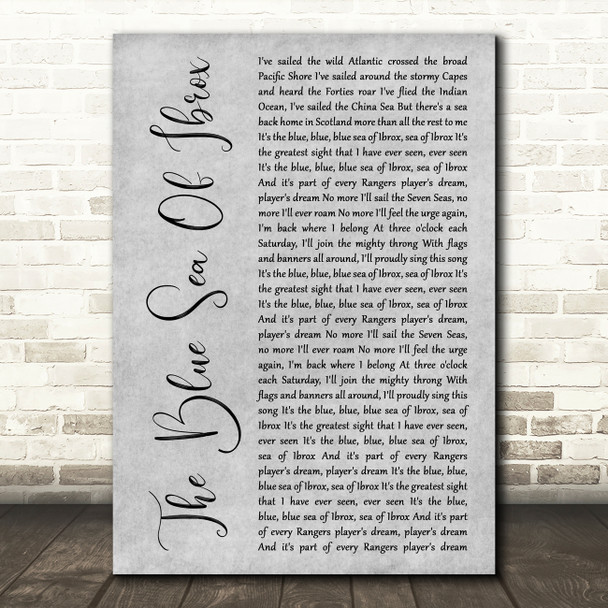 The Blue Sea Of Ibrox
I've sailed the wild Atlantic crossed the broad
Pacific Shore I've sailed around the stormy Capes
and heard the Forties roar I've flied the Indian
Ocean, I've sailed the China Sea But there's a sea
back home in Scotland more than all the rest to me
It's the blue, blue, blue sea of Ibrox, sea of Ibrox It's
the greatest sight that I have ever seen, ever seen
It's the blue, blue, blue sea of Ibrox, sea of Ibrox
And it's part of every Rangers player's dream,
player's dream No more I'll sail the Seven Seas, no
more I'll ever roam No more I'll feel the urge again,
I'm back where I belong At three o'clock each
Saturday, I'll join the mighty throng With flags
and banners all around, I'll proudly sing this song
It's the blue, blue, blue sea of Ibrox, sea of Ibrox It's
the greatest sight that I have ever seen, ever seen
It's the blue, blue, blue sea of Ibrox, sea of Ibrox
And it's part of every Rangers player's dream,
player's dream No more I'll sail the Seven Seas,
no more I'll ever roam No more I'll feel the urge
again, I'm back where I belong At three o'clock
each Saturday, I'll join the mighty throng With
flags and banners all around, I'll proudly sing this
song It's the blue, blue, blue sea of Ibrox, sea of
Ibrox It's the greatest sight that I have ever seen,
ever seen It's the blue, blue, blue sea of Ibrox,
sea of Ibrox And it's part of every Rangers
player's dream, player's dream It's the blue, blue,
blue sea of Ibrox, sea of Ibrox It's the greatest sight
that I have ever seen, ever seen It's the blue,
blue, blue sea of Ibrox, sea of Ibrox And it's part
of every Rangers player's dream, player's dream
And it's part of every Rangers player's dream